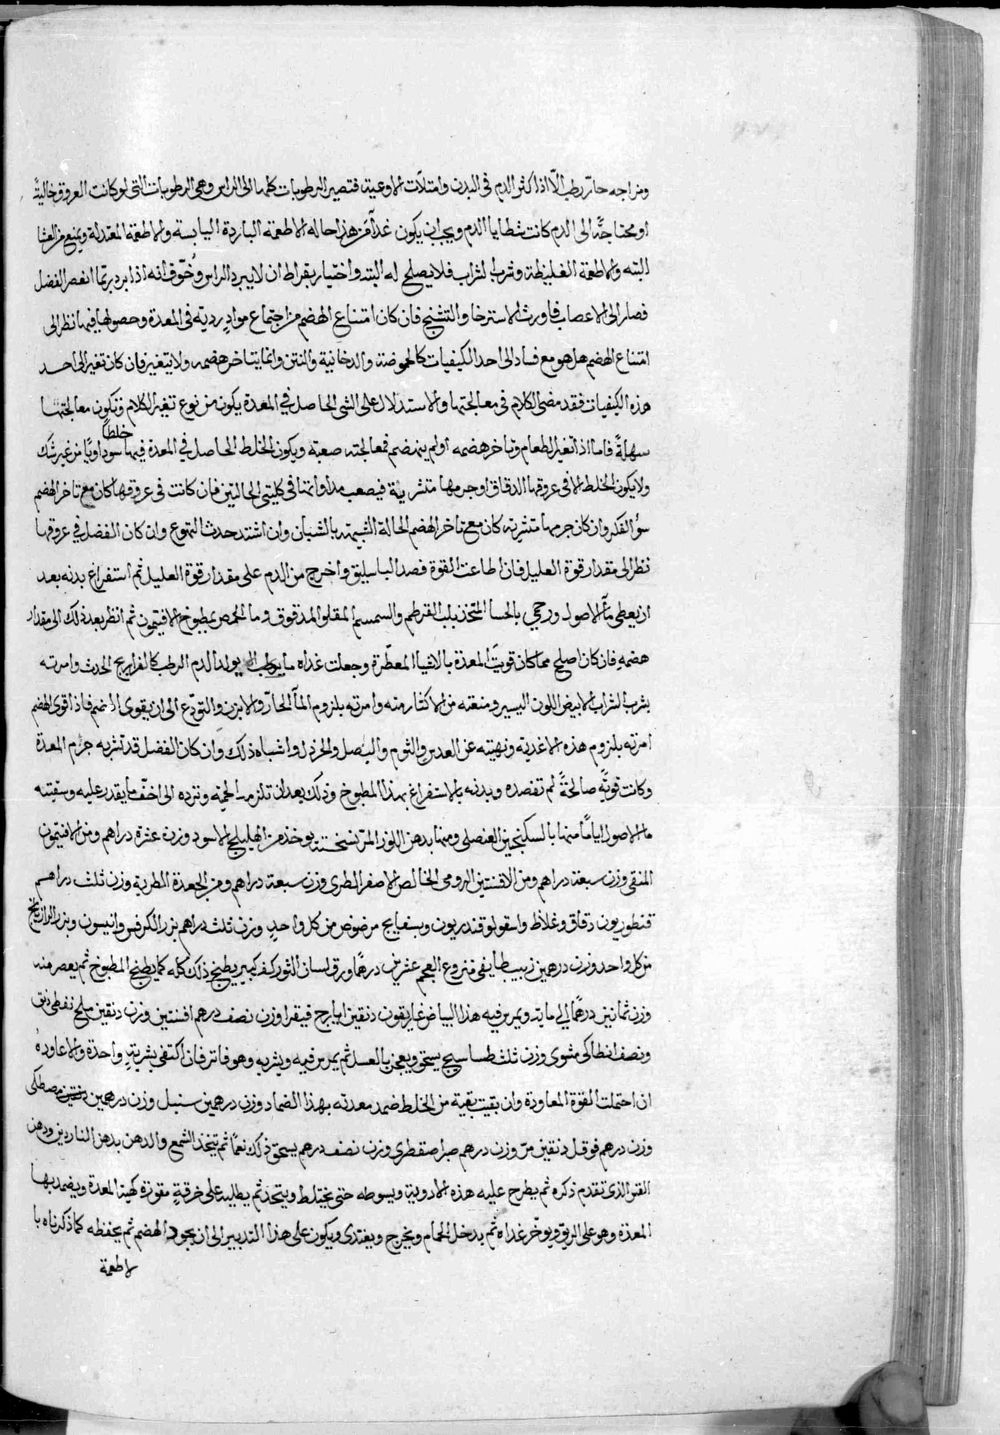 ومزاجه حار رطب الا اذا كثر الدم فى البدن وامتلات الاوعية فتصير الرطوبات كلها الى الراس وهى الرطوبات التى لو كانت العروق خالية
او محتاجة الى الدم كانت شطايا الدم ويجب ان يكون غذآ من هذا حاله الاطعمة الباردة اليابسة والاطعمة المعتدلة ويمنع من العشا
البته والاطعمة الغليظة وشرب الشراب فلا يصلح له البتة واختيار بقراط ان لا يبرد الراس وخوف انه اذا برد ربما انعصر الفضل
فصار الى الاعصاب فاورث الاسترخا والتشنج فان كان امتناع الهضم من اجتماع مواد ردية فى المعدة وحصولها فيها نظر الى
امتناع الهضم هل هو مع فساد الى احد الكيفيات كالحموضة والدخانية والنتن وانما يتاخر هضمه ولا يتغير فان كان تغير الى احد
هذه الكيفيات فقد مضى الكلام فى معالجتها والاستدلال على الشى الحاصل فى المعدة يكون من نوع تغير الكلام وتكون معالجتها
سهلة فاما اذا تغير الطعام وتاخر هضمه او لم ينهضم فمعالجته صعبة ويكون الخلط الحاصل فى المعدة فيها خلطا سوداويا من غير شك
ولا يكون الخلط الا فى عروقها الدقاق او جرمها متشربة فيصعب مداواتها فى كليتى الحالتين فان كانت فى عروقها كان مع تاخر الهضم
سؤ الفكر وان كان جرمها متشربه كان مع تاخر الهضم الحالة الشبيهة بالشبان وان اشتد حدث التهوع وان كان الفضل فى عروقها
نظر الى مقدار قوة العليل فان اطاعت القوة فصد الباسليق واخرج من الدم على مقدار قوة العليل ثم استفراغ بدنه بعد
ان يعطى مآ الاصول ورحجى بالحسا المتخذ بلب القرطم والسمسم المقلو المدقوق وما الحمص بمطبوخ الافتيمون ثم انظر بعد ذلك الى مقدار
هضمه فان كان اصلح مما كان قويت المعدة بالاشيا المعطرة وجعلت غذاه ما يولد الدم الرطب كالفراريج الحدث وامرته
بشرب الشراب الابيض اللون اليسير ومنعته من الاكثار منه وامرته بلزوم المآ الحار والابزن والتودع الى ان يقوى الهضم فاذا قوى الهضم
امرته بلزوم هذه الاغذية ونهيته عن العدس والثوم والبصل والخردل واشباه ذلك وان كان الفضل قد تشربه جرم المعدة
وكانت قوته صالحة لم تفصده وبدنه بالاستفراغ بهذا المطبوخ وذلك بعد ان تلزمه الحمية وترده الى اخف ما يقدر عليه وسقيته
ما الاصول اياما منها بالسكنجبين العنصلى ومنها بدهن اللوز المر نسخته يوخذ من الهليلج الاسود وزن عشرة دراهم ومن الافتيمون
المنقى وزن سبعة دراهم ومن الافسنتين الرومى الخالص الاصفر الطرى وزن سبعة دراهم ومن الجعدة الطرية وزن ثلث دراهم
قنطوريون دقاق وغلاظ واسقولوقندريون وبسفايج مرضوض من كل واحد وزن ثلث دراهم بزر الكرفس وانيسون وبزر الرازيانج
من كل واحد وزن درهمين زبيب طايفى منزوع العجم عشرين درهما ورق لسان الثور كف كبير يطبخ ذلك كله كما يطبخ المطبوخ ثم يعصر منه
وزن ثمانين درهما الى مايه ويمرس فيه هذا البياض غاريقون دنقين ايارج فيقرا وزن نصف درهم افسنتين وزن دنقين ملح نفطى دنق
ونصف انطاكى مشوى وزن ثلث طساسيج يسحق ويعجن بالعسل ثم يمرس فيه ويشربه وهو فاتر فان اكتفى بشربة واحدة والا عاوده
ان احتملت القوة المعاودة وان بقيت بقية من الخلط ضمد معدته بهذا الضماد وزن درهمين سنبل وزن درهمين مصطكى
وزن درهم فوفل دنقين مر وزن درهم صبر صقطرى وزن نصف درهم يسحق ذلك نعما ثم يتخذ الشمع والدهن بدهن الناردين ودهن
القوالذى تقدم ذكره ثم يطرح عليه هذه الادوية ويسوطه حتى يختلط ويتحد ثم يطليه على خرقة مقورة كهيئة المعدة ويضمد بها
المعدة وهو على الريق ويوخر غداه ثم يدخل الحمام ويخرج ويغتدى ويكون على هذا التدبير الى ان يجود الهضم ثم يحفظه كما ذكرناه با
لاطعمة